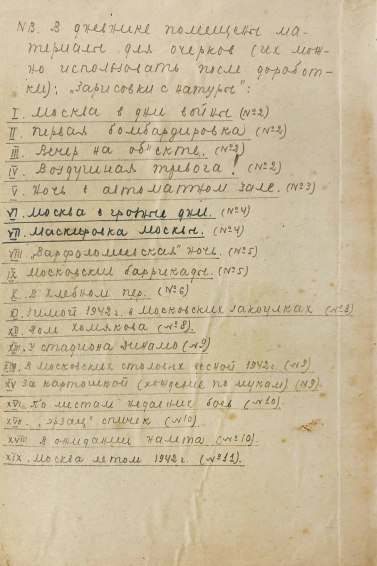 NB. В дневнике помещены ма-
териалы для очерков (их мож-
но использовать после доработ-
ки); „Зарисовки с натуры":
I. Москва в дни войны. (№2)
II. Первая бомбардировка (№2)
III. Вечер на объекте. (№2)
IV. Воздушная тревога! (№2)
V. Ночь в автоматном зале. (№3)
VI. Москва в грозные дни. (№4)
VII. Маскировка Москвы. (№4)
VIII. „Варфоломеевская" ночь. (№5)
IX. Московские баррикады. (№5)
X. В Хлебном пер. (№6)
XI. Зимой 1942 г. в московских закоулках (№8)
XII. Дом Хомякова (№8).
XIII. У стадиона Динамо (№9)
XIV. В московских столовых весной 1942 г. (№9)
XV. За картошкой (хождение по мукам) (№9).
XVI. По местам недавних боев (№10).
XVII. „Эрзац" спичек (№10).
XVIII. В ожидании налета (№10).
XIX. Москва летом 1942 г. (№11).